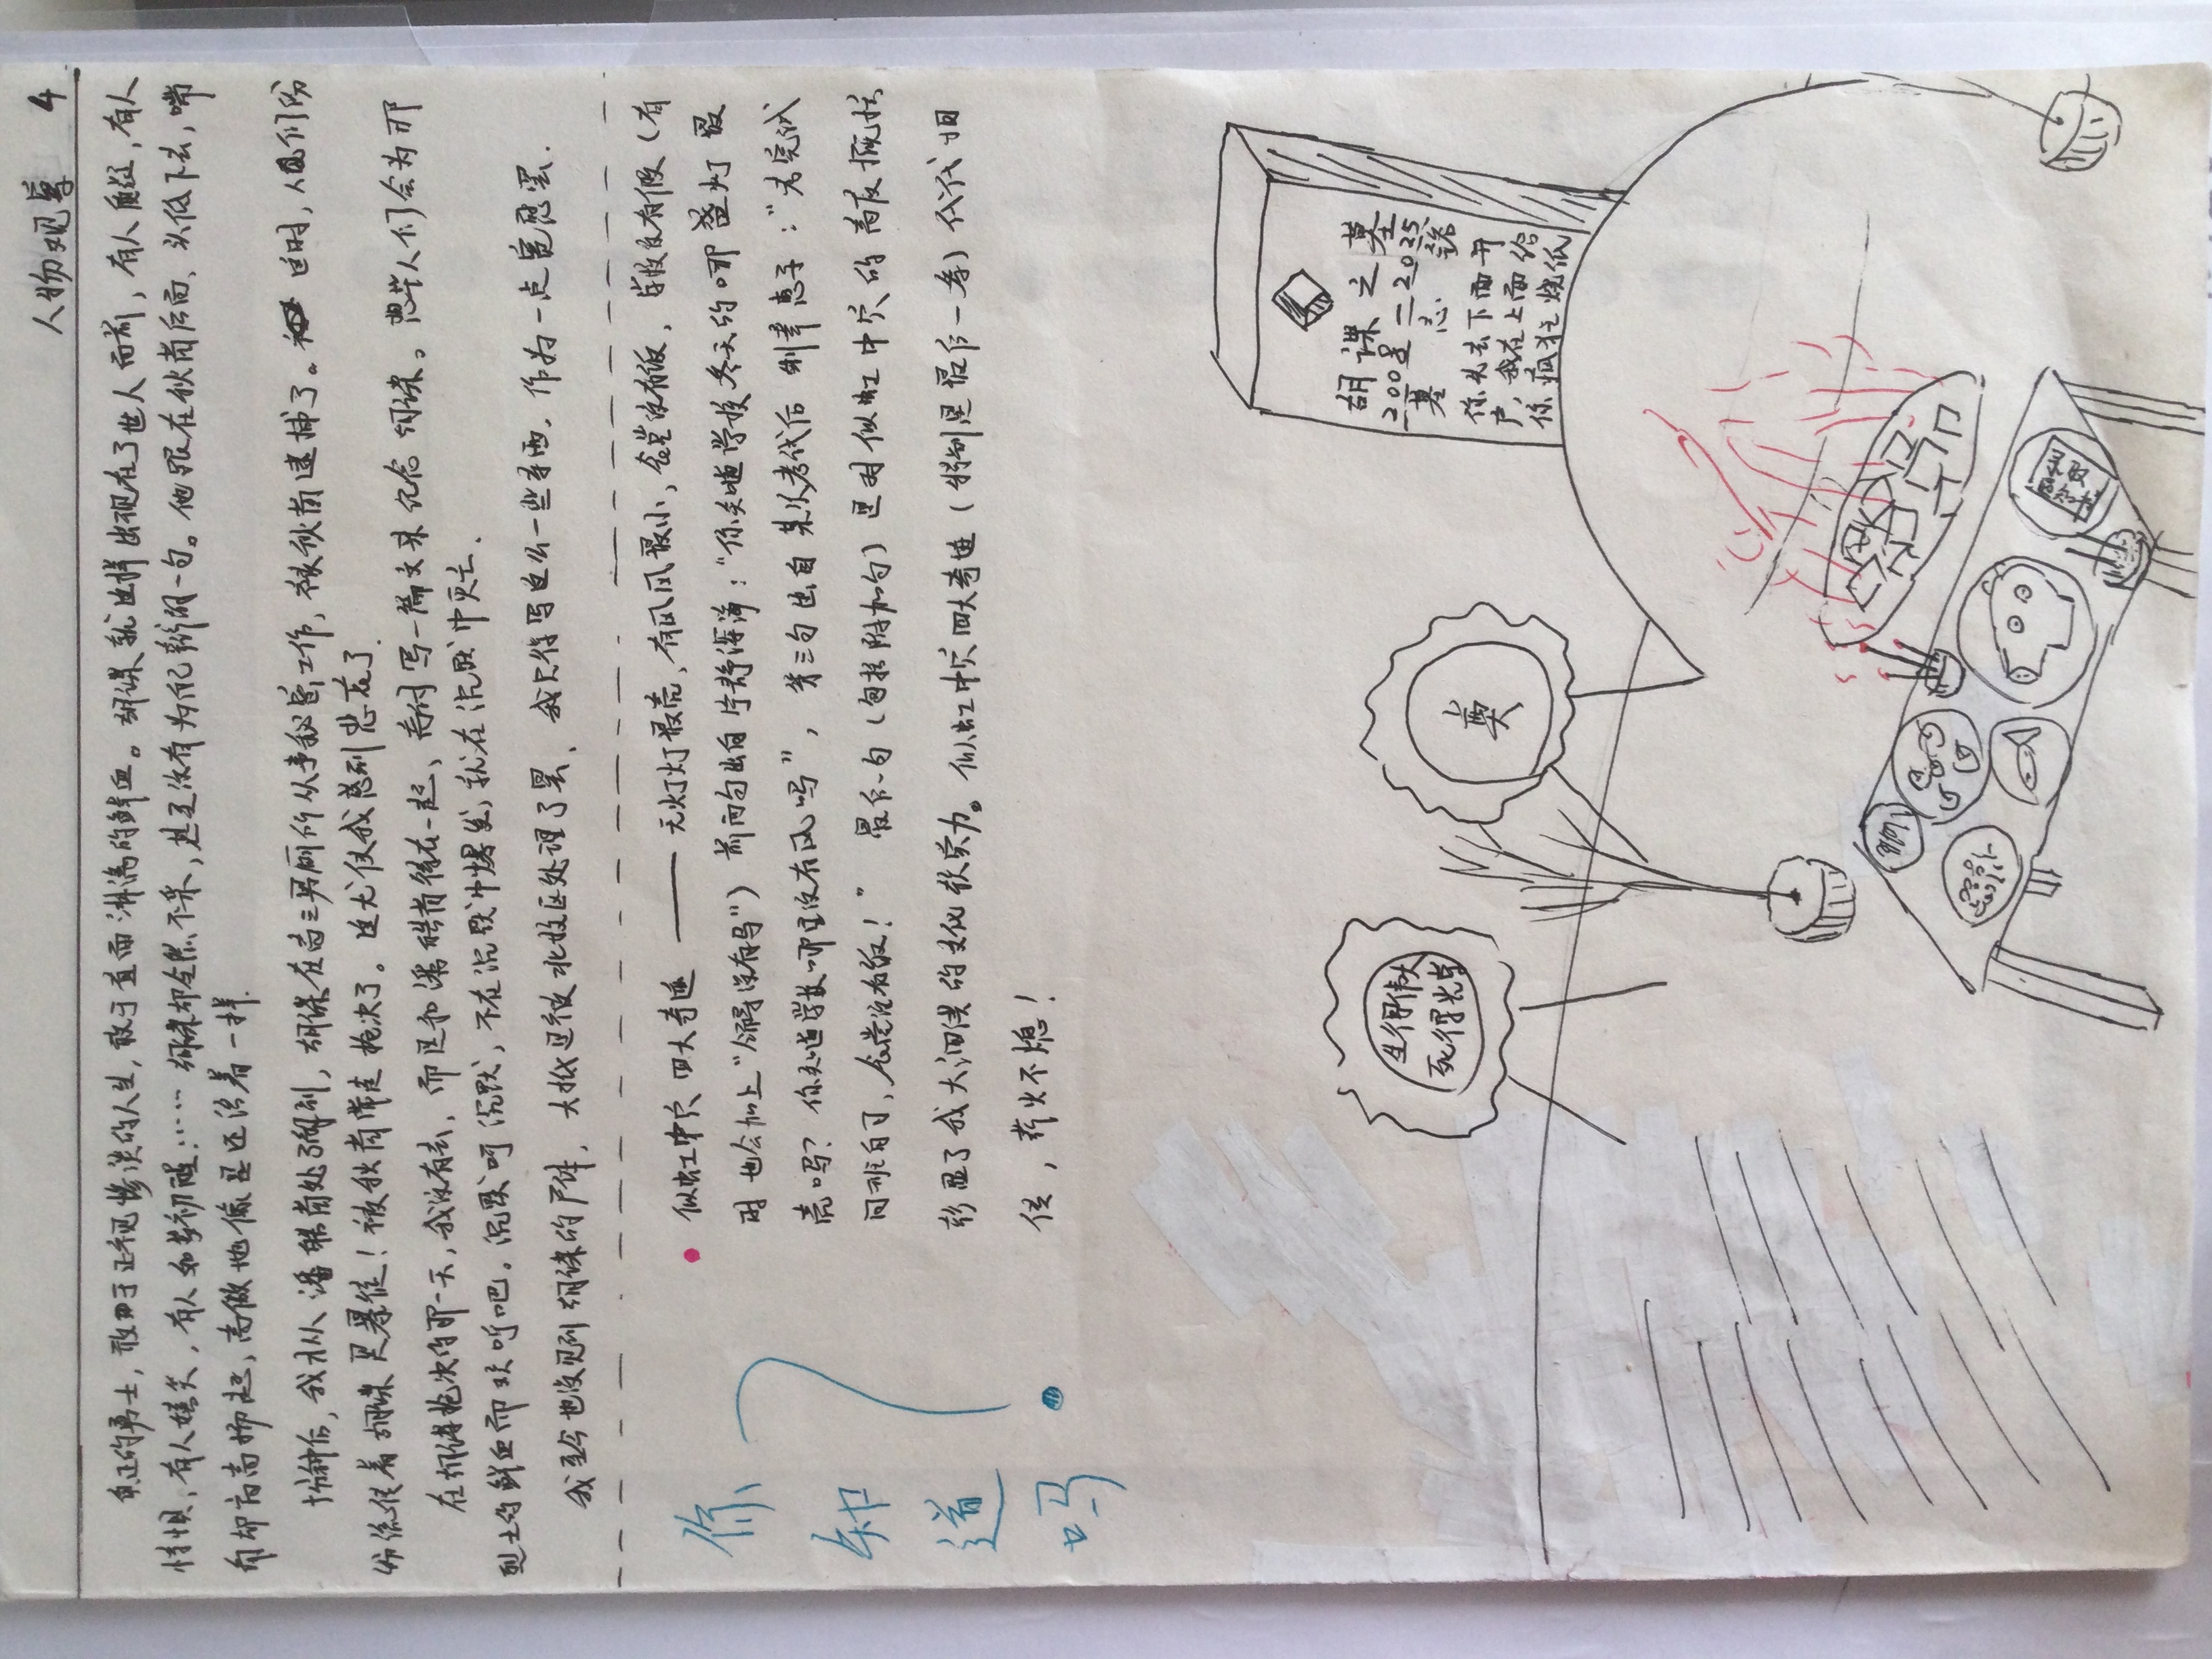 人物观享 4
真正的勇士，敢于正视惨淡的人生，敢于直面淋漓的鲜血。胡课就这样出现在了世人面前，有人质疑，有人
恃惧，有人嬉笑，有人如梦初醒：…… 胡课却全然不采，甚至没有为自己辩解一句。他跟在秋苘后面、头低下去，嘴
角却高高扬起，高傲地像是还活着一样.
十分钟后，我才从潘皓苘处了解到，胡课在高三男厕所从事秘密工作，被秋苘逮捕了。这时，人们纷
纷流传着胡课是暴徒！被秋苘带走枪决了。这尤使我感到悲哀了.
在胡课枪决的那一天，我没有去，而是和潘皓苘待在一起，商讨写一篇文来纪念胡课。想毕人们会为那
烈士的鲜血而欢呼吧。沉默呵沉默，不在沉默中爆发，就在沉默中灭亡.
我至今也没见到胡课的尸体，大抵是被北校区处理了罢、我只得写这么一些东西，作为一点宽慰罢.
你知道吗？
似虹中穴四大奇迹 —— 无灯灯最亮，有风风最小，食堂没有饭，学校没有假（有
时也会加上“领导没有马”）前两句出自宁静深海：“你知道学校冬天的哪盏灯最
亮吗？你知道学校哪里没有风吗”，第三句出自某次考试后 惠子：“考完试
回班自习，食堂没有饭！” 最后一句（包括附加句）是对似虹中穴的高度概括
彰显了我大泗洪的文化软实力。似虹中穴四大奇迹（特别是最后一条）代代相
传，薪火不熄！
生得伟大
死得光荣
奠
胡课之墓
2008—2025
墓志铭
你先去下面开
户，我在上面给
你疯狂烧低